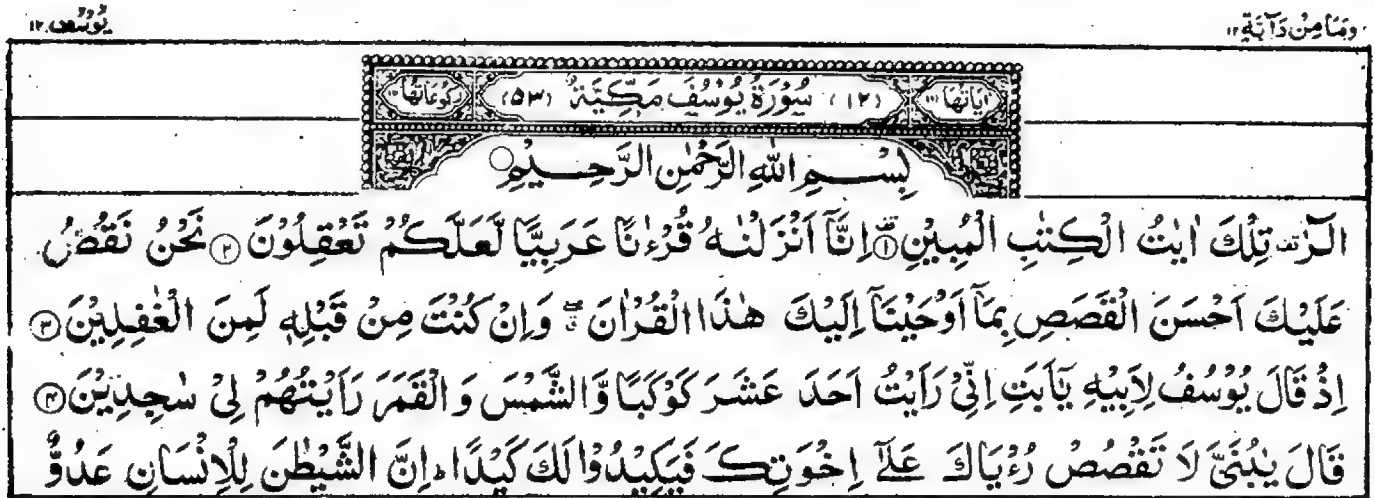 وَمَا مِنْ دَآبَّةٍ ١٢ يُوْسُف ١٢
اٰيَاتُهَا ١١١ (١٢) سُوْرَةُ يُوْسُفَ مَكِّيَّةٌ (٥٣) رُكُوْعَاتُهَا ١٢
بِسْمِ اللّٰهِ الرَّحْمٰنِ الرَّحِيْمِ
الٓرٰ تِلْكَ اٰيٰتُ الْكِتٰبِ الْمُبِيْنِ ۝١ اِنَّآ اَنْزَلْنٰهُ قُرْءٰنًا عَرَبِيًّا لَّعَلَّكُمْ تَعْقِلُوْنَ ۝٢ نَحْنُ نَقُصُّ
عَلَيْكَ اَحْسَنَ الْقَصَصِ بِمَآ اَوْحَيْنَآ اِلَيْكَ هٰذَا الْقُرْاٰنَ ۖ وَاِنْ كُنْتَ مِنْ قَبْلِهٖ لَمِنَ الْغٰفِلِيْنَ ۝٣
اِذْ قَالَ يُوْسُفُ لِاَبِيْهِ يٰٓاَبَتِ اِنِّىْ رَاَيْتُ اَحَدَ عَشَرَ كَوْكَبًا وَّالشَّمْسَ وَ الْقَمَرَ رَاَيْتُهُمْ لِىْ سٰجِدِيْنَ ۝٤
قَالَ يٰبُنَىَّ لَا تَقْصُصْ رُءْيَاكَ عَلٰٓى اِخْوَتِكَ فَيَكِيْدُوْا لَكَ كَيْدًا ؕ اِنَّ الشَّيْطٰنَ لِلْاِنْسَانِ عَدُوٌّ